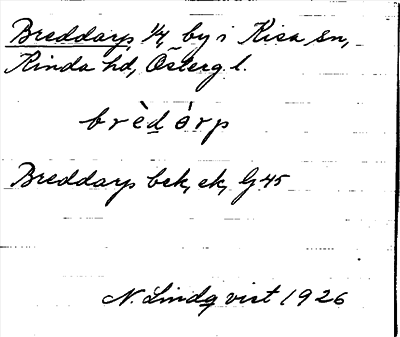 Breddarp 1/4, by i Kisa sn,
Kinda hd, Österg. l.
brèdárp
Breddarp bek, ek, G 45
N. Lindqvist 1926